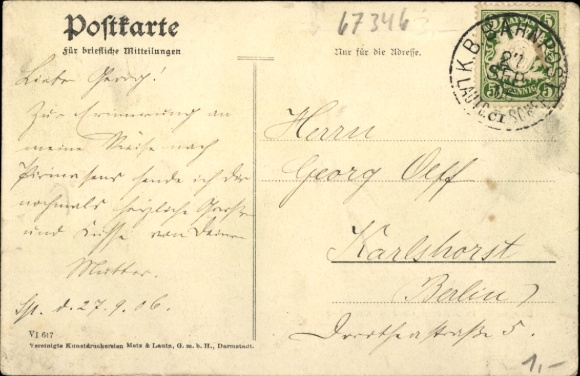 Postkarte
67346
für briefliche Mitteilungen
Nur für die Adresse.
K.B. BAHNPOST
27
SEP
5
5
PFENNIG
Lieber Georg!
Zur Erinnerung an
meine Reise nach
Pirmasens sende ich dir
nochmals herzliche Grüße
und Küsse von Deiner
Mutter.
d. 27.9.06.
Herrn
Georg Oeff
Karlshorst
Berlin)
Dorotheastraße 5.
VI 617
Vereinigte Kunstdruckereien Metz & Lautz, G. m. b. H., Darmstadt.
1,-